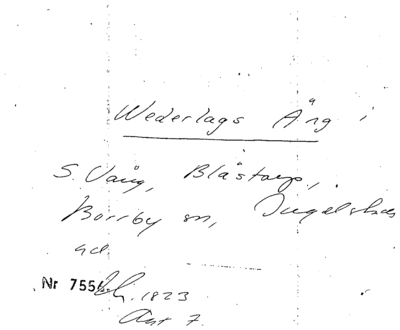 Wederlags Äng i
S. Vång, Blåstorp,
Borrby sn, Ingelstads
hd.
Nr 755 1823
Akt 7